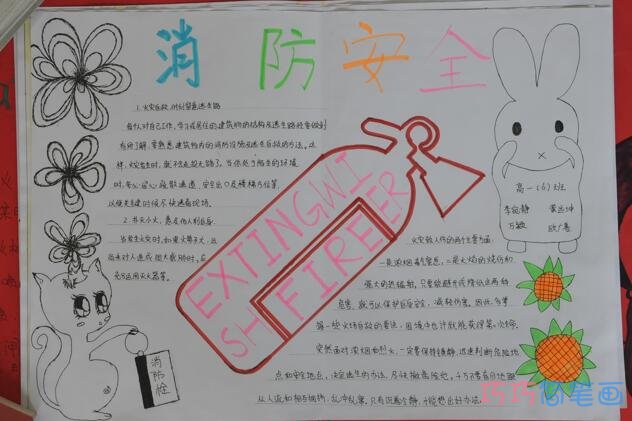 消防安全
1.火灾自救,时刻留意逃生路
每个人对自己工作、学习或居住的建筑物的结构及逃生路径要做到
有所了解,要熟悉建筑物内的消防设施及逃生自救的方法。这
样,火灾发生时,就不会走投无路了。当你处于陌生的环境
时,务必留心疏散通道、安全出口及楼梯方位等,
以便关键时候尽快逃离现场。
2.扑灭小火,惠及他人利自身
当发生火灾时,如果火势不大,且
尚未对人造成很大威胁时,
EXTINGWI
SH FIREER
高一(6)班
李宛静
万敏
火灾致人伤的两个主要方面:
一是浓烟毒气窒息,二是火焰的烧伤和
强大的热辐射。只要能避开或降低这两种
危害,就可以保护自身安全,减轻伤害。因此,多掌
握一些火场自救的要诀,困境中也许就能获得第二次生命。
突然面对浓烟和烈火,一定要保持镇静,迅速判断危险地
点和安全地点,决定逃生的办法,尽快撤离险地。千万不要盲目地跟
从人流和相互拥挤、乱冲乱窜。只有沉着镇静,才能想出好办法。
消防栓
巧巧简笔画